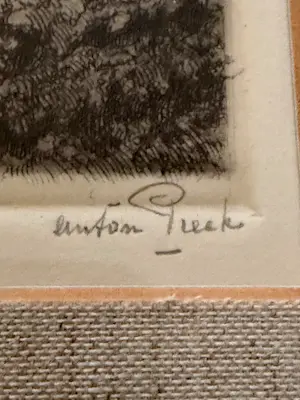 anton Pieck